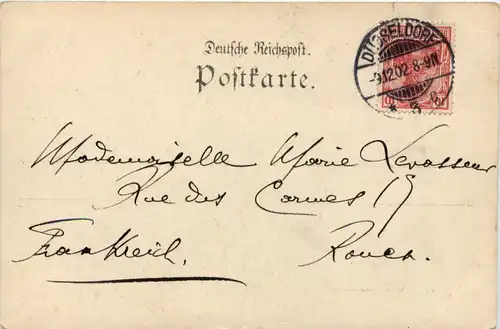 Deutsche Reichspost.
Postkarte.
DÜSSELDORF
-9.12.02.8-9N
* 3 c.
10 10
Mademoiselle Marie Levasseur
Rue des Carmes 15
Frankreich. Rouen.